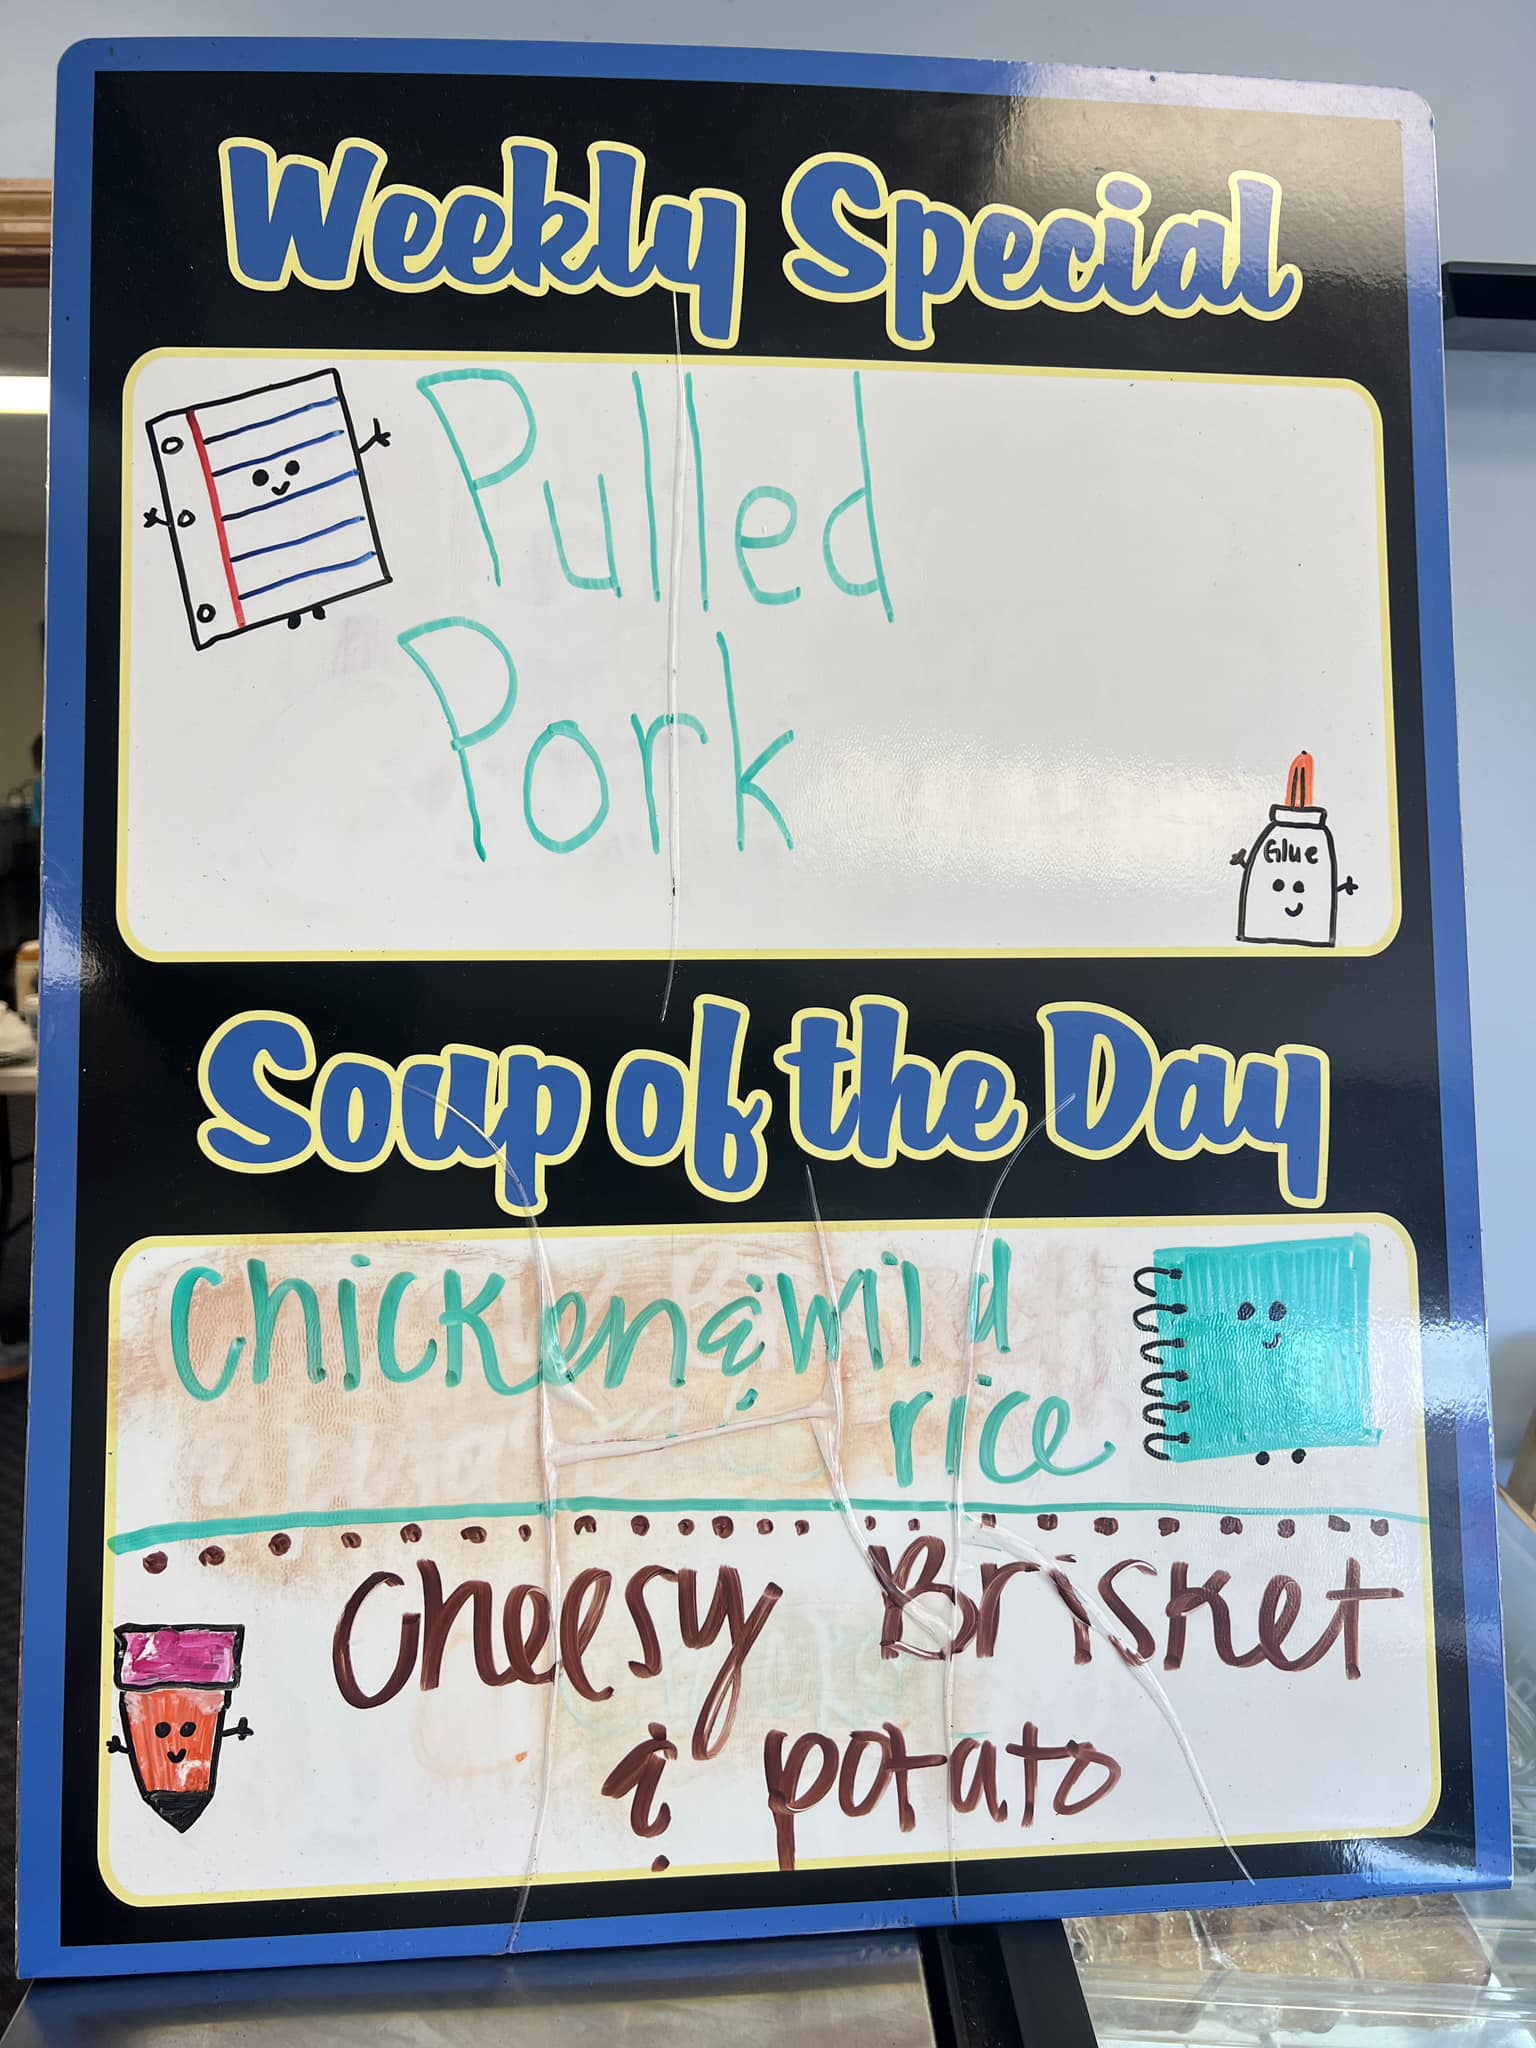 Weekly Special
Pulled
Pork
Glue
Soup of the Day
Chicken & wild
rice
Cheesy Brisket
& potato